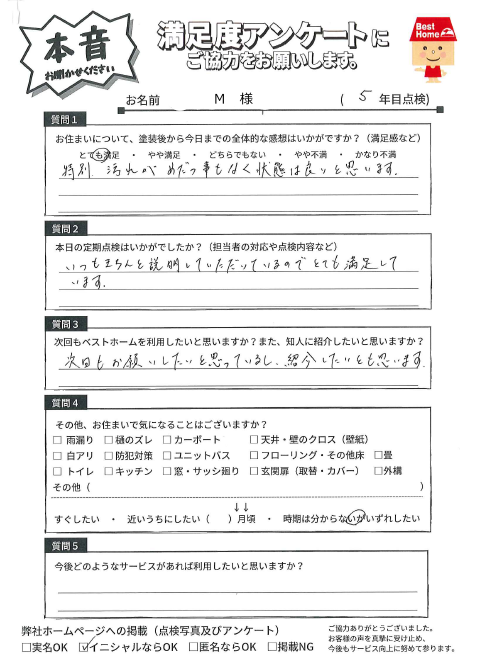 本音
お聞かせください
満足度アンケートに
ご協力をお願いします。
Best
Home
お名前 M 様 ( 5 年目点検)
質問1
お住まいについて、塗装後から今日までの全体的な感想はいかがですか？（満足感など）
とても満足 ・ やや満足 ・ どちらでもない ・ やや不満 ・ かなり不満
特別 汚れが めだつ事もなく状態は良いと思います.
質問2
本日の定期点検はいかがでしたか？（担当者の対応や点検内容など）
いつもきちんと説明していただいているので とても満足して
います.
質問3
次回もベストホームを利用したいと思いますか？また、知人に紹介したいと思いますか？
次回もお願いしたいと思っているし、紹介したいとも思います.
質問4
その他、お住まいで気になることはございますか？
□ 雨漏り □ 樋のズレ □ カーポート □ 天井・壁のクロス（壁紙）
□ 白アリ □ 防犯対策 □ ユニットバス □ フローリング・その他床 □畳
□ トイレ □ キッチン □ 窓・サッシ廻り □ 玄関扉（取替・カバー） □外構
その他（ ）
↓↓
すぐしたい ・ 近いうちにしたい（ ）月頃 ・ 時期は分からないがいずれしたい
質問5
今後どのようなサービスがあれば利用したいと思いますか？
弊社ホームページへの掲載（点検写真及びアンケート）
□実名OK ☑イニシャルならOK □匿名ならOK □掲載NG
ご協力ありがとうございました。
お客様の声を真摯に受け止め、
今後もサービス向上に努めて参ります。